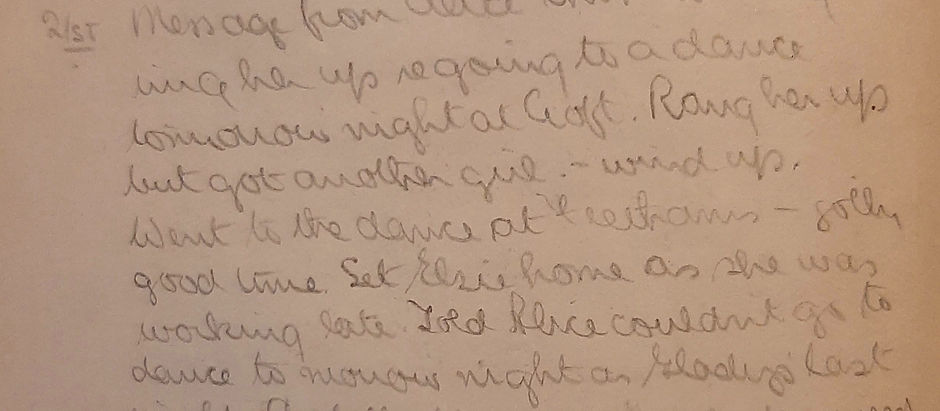 21st Message from
ring her up re going to a dance
tomorrow night at Croft. Rang her up
but got another girl. - wind up.
Went to the dance at - jolly
good time. Set Elsie home as she was
working late. Told Alice couldnt go to
dance tomorrow night as Gladys' last